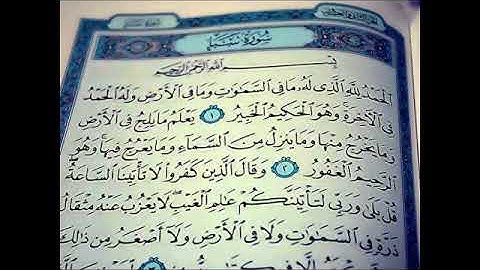 سُورَةُ سَبَإٍ
بِسْمِ ٱللَّهِ ٱلرَّحْمَٰنِ ٱلرَّحِيمِ
ٱلْحَمْدُ لِلَّهِ ٱلَّذِى لَهُۥ مَا فِى ٱلسَّمَٰوَٰتِ وَمَا فِى ٱلْأَرْضِ وَلَهُ ٱلْحَمْدُ
فِى ٱلْءَاخِرَةِ وَهُوَ ٱلْحَكِيمُ ٱلْخَبِيرُ ١ يَعْلَمُ مَا يَلِجُ فِى ٱلْأَرْضِ
وَمَا يَخْرُجُ مِنْهَا وَمَا يَنزِلُ مِنَ ٱلسَّمَآءِ وَمَا يَعْرُجُ فِيهَا وَهُوَ
ٱلرَّحِيمُ ٱلْغَفُورُ ٢ وَقَالَ ٱلَّذِينَ كَفَرُوا۟ لَا تَأْتِينَا ٱلسَّاعَةُ
قُلْ بَلَىٰ وَرَبِّى لَتَأْتِيَنَّكُمْ عَٰلِمِ ٱلْغَيْبِ لَا يَعْزُبُ عَنْهُ مِثْقَالُ
ذَرَّةٍ فِى ٱلسَّمَٰوَٰتِ وَلَا فِى ٱلْأَرْضِ وَلَآ أَصْغَرُ مِن ذَٰلِكَ